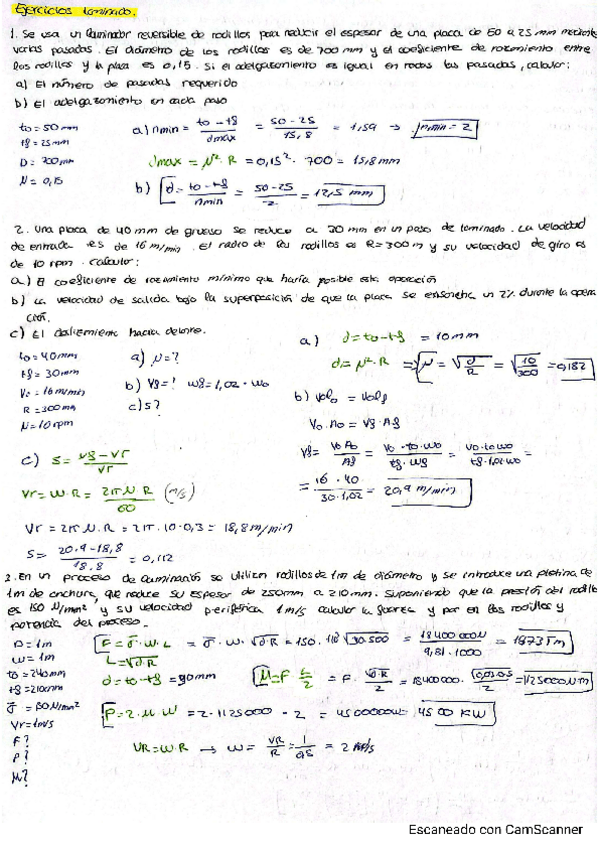 Ejercicios laminado.
1. Se usa un laminador reversible de rodillos para reducir el espesor de una placa de 50 a 25 mm mediante
varias pasadas. El diámetro de los rodillos es de 700 mm y el coeficiente de rozamiento entre
los rodillos y la placa es 0,15. Si el adelgazamiento es igual en todas las pasadas, calcular:
a) El número de pasadas requerido
b) El adelgazamiento en cada paso
to = 50 mm
tf = 25 mm
D = 700 mm
μ = 0,15
a) nmin = (to - tf)/dmax = (50 - 25)/15,8 = 1,59 → nmin = 2
dmax = μ². R = 0,15². 700 = 15,8 mm
b) d = (to - tf)/nmin = (50 - 25)/2 = 12,5 mm
2. Una placa de 40 mm de grueso se reduce a 30 mm en un paso de laminado. La velocidad
de entrada es de 16 m/min. El radio de los rodillos es R = 300 m y su velocidad de giro es
de 10 rpm. Calcular:
a) El coeficiente de rozamiento mínimo que haría posible esta operación
b) La velocidad de salida bajo la superposición de que la placa se ensancha un 2% durante la opera
ción.
c) El deslizamiento hacia delante.
to = 40 mm
tf = 30 mm
Vo = 16 m/min
R = 300 mm
N = 10 rpm
a) μ = ?
b) Vf = ? wf = 1,02 · wo
c) s?
a) d = to - tf = 10 mm
d = μ². R ⇒ μ = √(d/R) = √(10/300) = 0,182
b) Volo = Volf
Vo. Ao = Vf. Af
Vf = (Vo Ao)/Af = (Vo · to · wo)/(tf · wf) = (Vo · to · wo)/(tf · 1,02 wo) =
= (16 · 40)/(30 · 1,02) = 20,9 m/min
c) s = (Vf - Vr)/Vr
Vr = W. R = (2π N. R)/60 (m/s)
Vr = 2π N. R = 2π. 10 · 0,3 = 18,8 m/min
s = (20.9 - 18,8)/18.8 = 0,112
3. En un proceso de laminación se utilizan rodillos de 1m de diámetro y se introduce una pletina de
1m de anchura, que reduce su espesor de 250mm a 210mm. Suponiendo que la presión del rodillo
es 150 N/mm² y su velocidad periférica 1 m/s calcular la fuerza y par en los rodillos y
potencia del proceso.
D = 1m
w = 1m
tf = 210mm
Vr = 1m/s
F?
P?
M?
L = √(d. R)
VR = W. R → W = VR/R